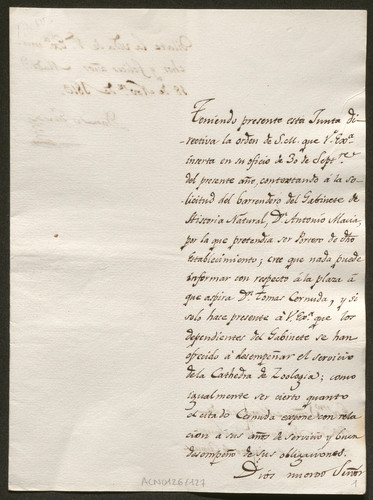 Teniendo presente esta Junta di-
rectiva la orden de S.M. que V. Exª
inserta en su oficio de 30 de Septre
del presente año, contextando á la so-
licitud del barrendero del Gabinete de
Historia Natural, Dn. Antonio Macia,
por la que pretendia ser Portero de dho
establecimiento; cree que nada puede
informar con respecto á la plaza á
que aspira Dn. Tomas Cornuda, y si
solo hace presente á V. Exª que los
dependientes del Gabinete se han
ofrecido á desempeñar el servicio
de la Cathedra de Zoologia; como
igualmente ser cierto quanto
el citado Cornuda expone con rela-
cion a sus años de servicio y buen
desempeño de sus obligaciones.
Dios nuestro Señor
ACN0126/127
1